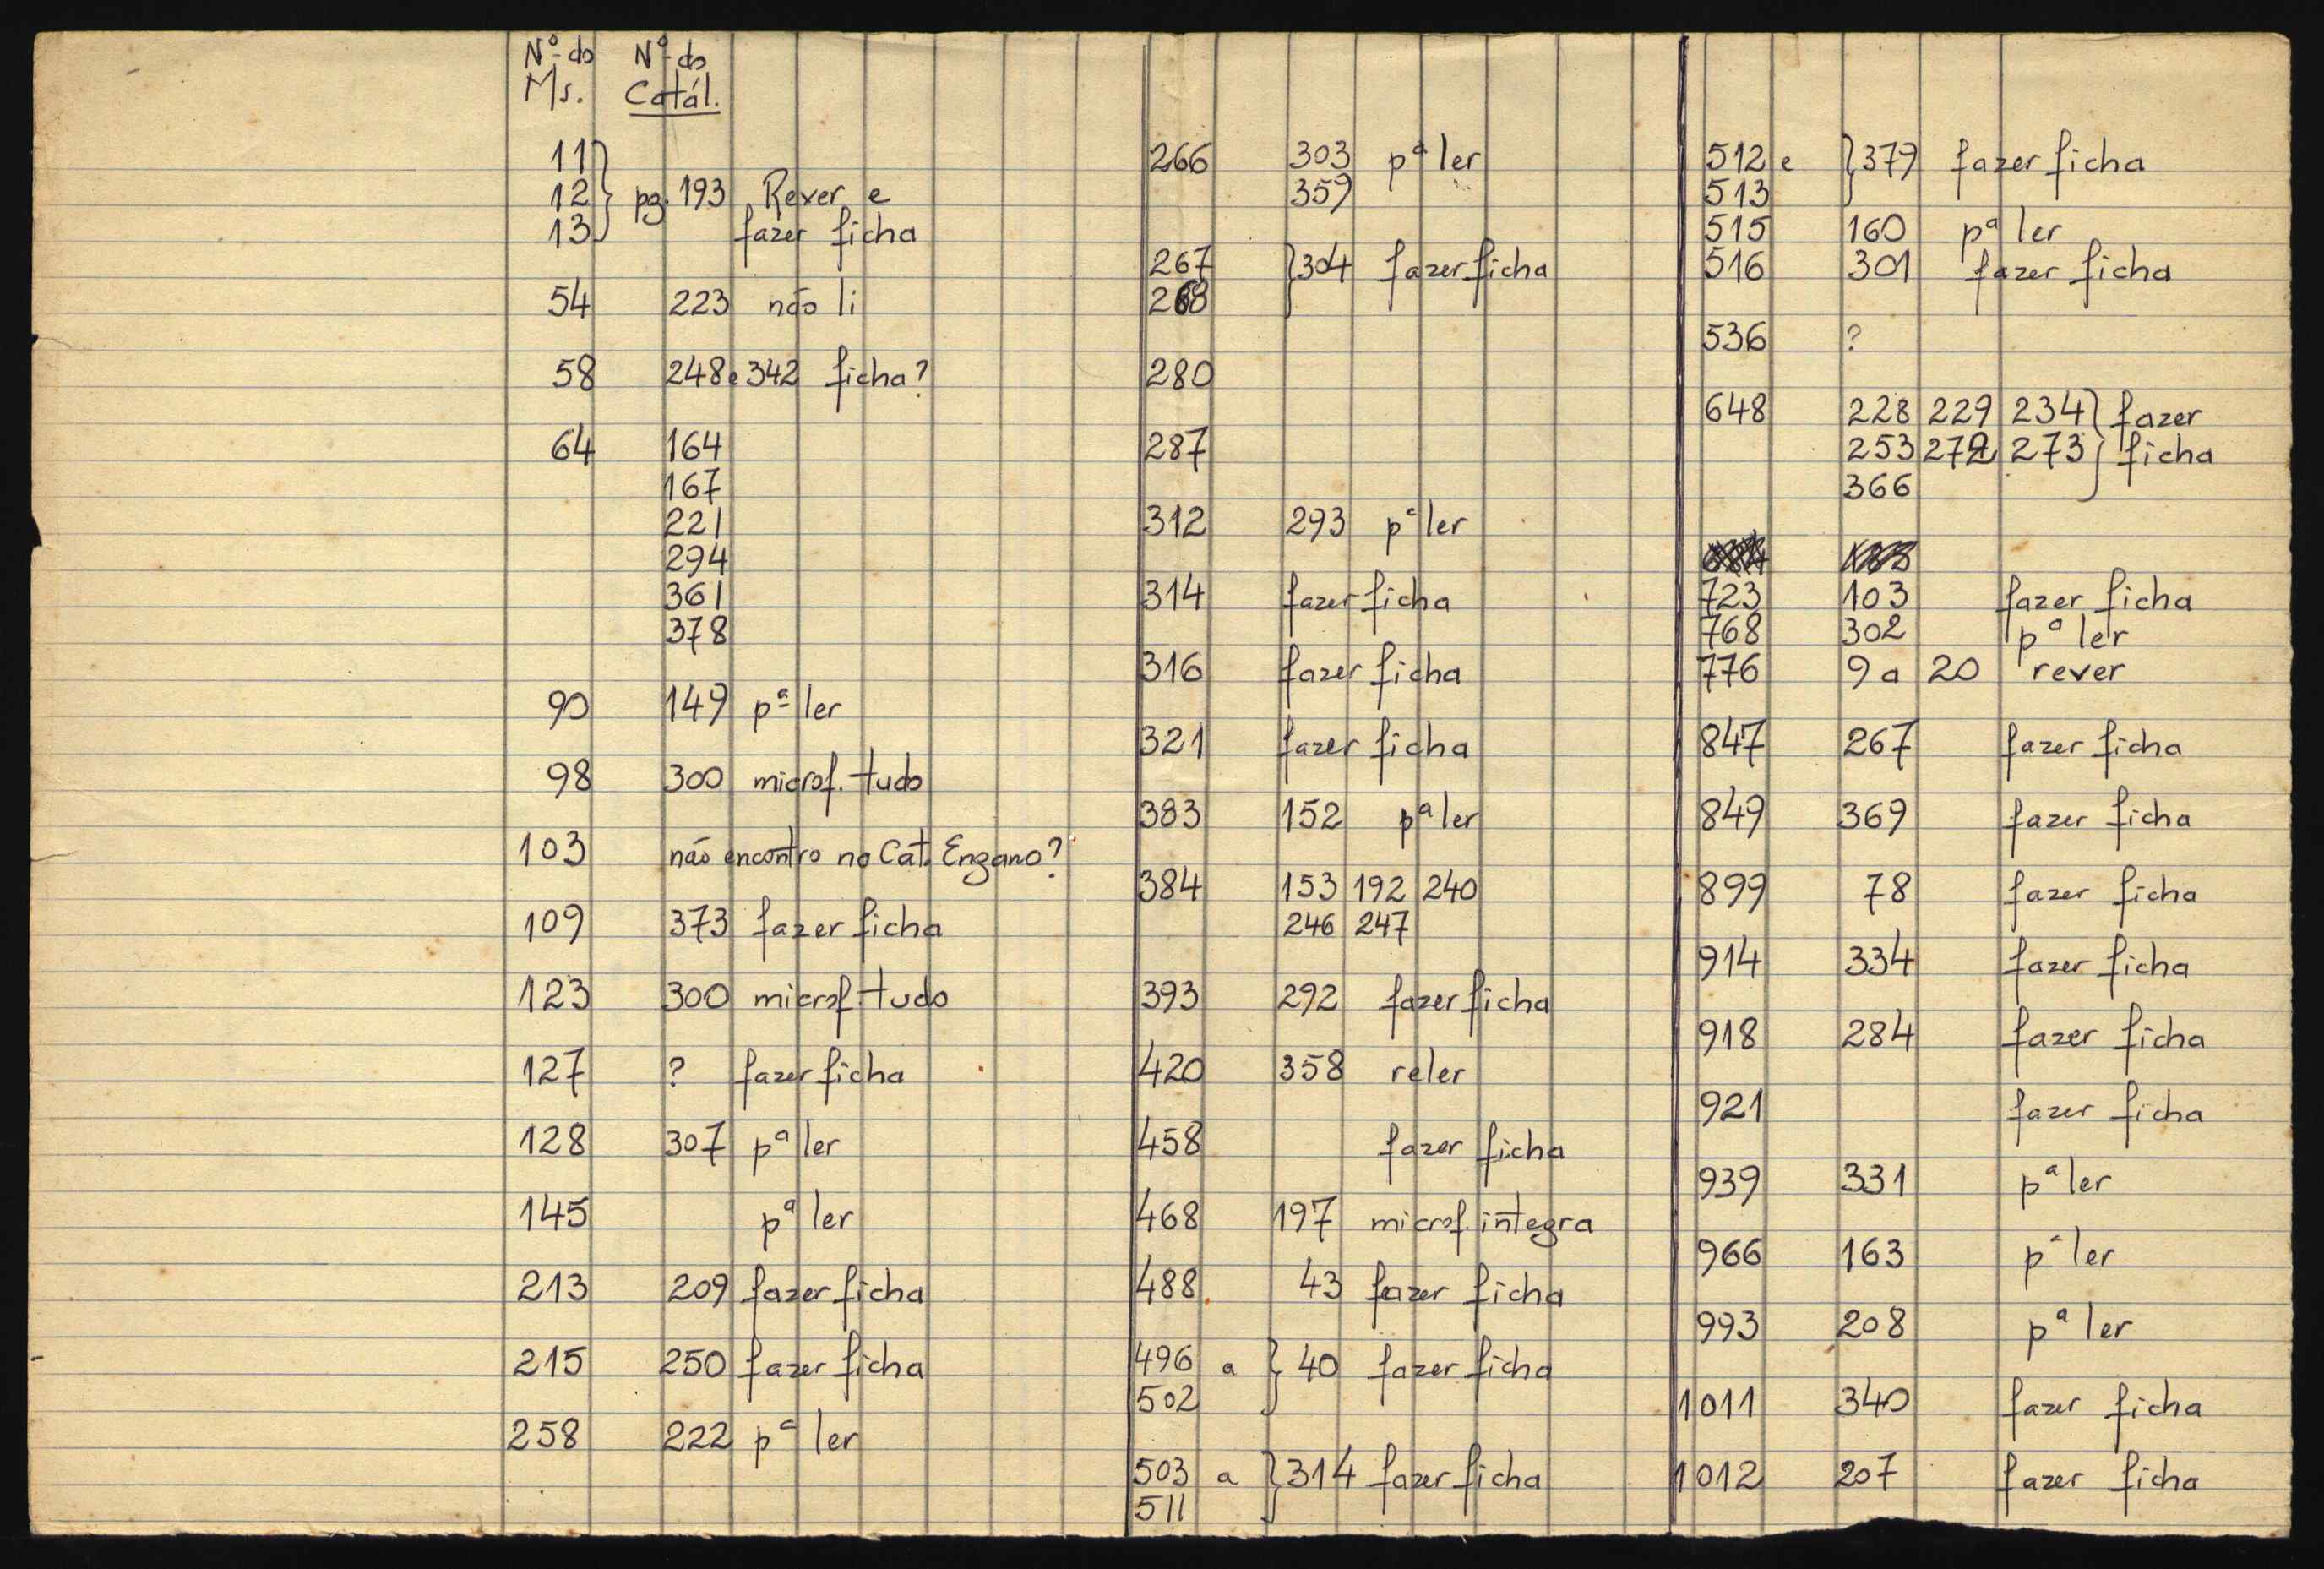 Nº do Nº do
Ms. Catál.
11
12 } pg. 193 Rever e
13 fazer ficha
54 223 não li
58 248 e 342 ficha?
64 164
167
221
294
361
378
90 149 pª ler
98 300 microf. tudo
103 não encontro no Cat. Engano?
109 373 fazer ficha
123 300 microf. tudo
127 ? fazer ficha
128 307 pª ler
145 pª ler
213 209 fazer ficha
215 250 fazer ficha
258 222 pª ler
266 303 pª ler
359
267 } 304 fazer ficha
268
280
287
312 293 pª ler
314 fazer ficha
316 fazer ficha
321 fazer ficha
383 152 pª ler
384 153 192 240
246 247
393 292 fazer ficha
420 358 reler
458 fazer ficha
468 197 microf. integra
488 43 fazer ficha
496 a } 40 fazer ficha
502
503 a } 314 fazer ficha
511
512 e } 379 fazer ficha
513
515 160 pª ler
516 301 fazer ficha
536 ?
648 228 229 234 } fazer
253 272 273 ficha
366
723 103 fazer ficha
768 302 pª ler
776 9 a 20 rever
847 267 fazer ficha
849 369 fazer ficha
899 78 fazer ficha
914 334 fazer ficha
918 284 fazer ficha
921 fazer ficha
939 331 pª ler
966 163 pª ler
993 208 pª ler
1011 340 fazer ficha
1012 207 fazer ficha